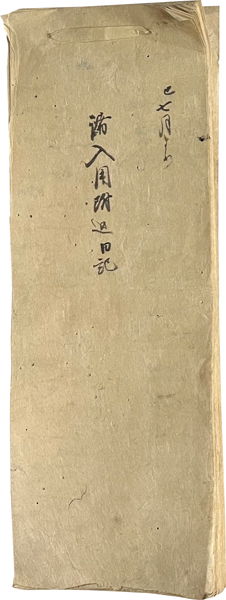 巳七月より
諸入用附込日記